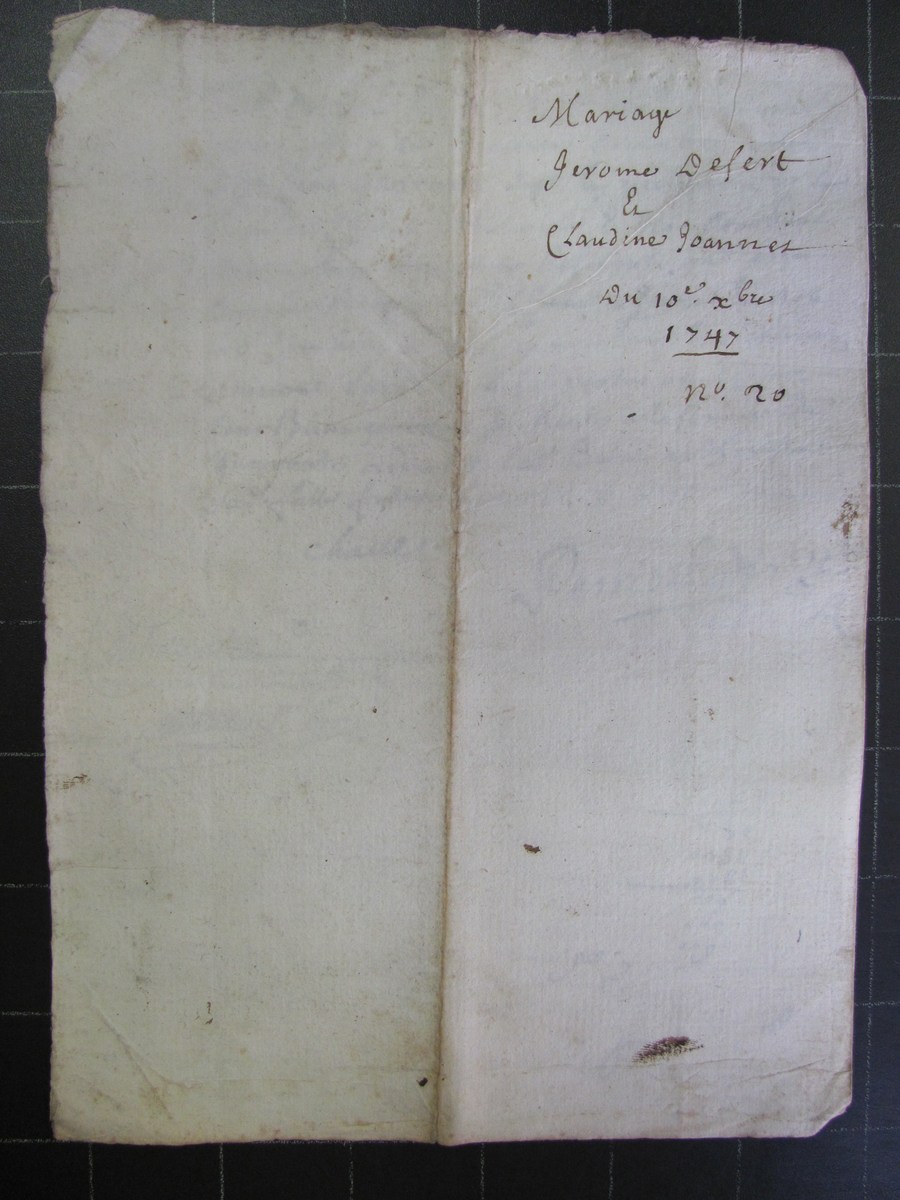 Mariage
Jerome Desert
Et
Claudine Joannes
Du 10e. xbre
1747
No. 20